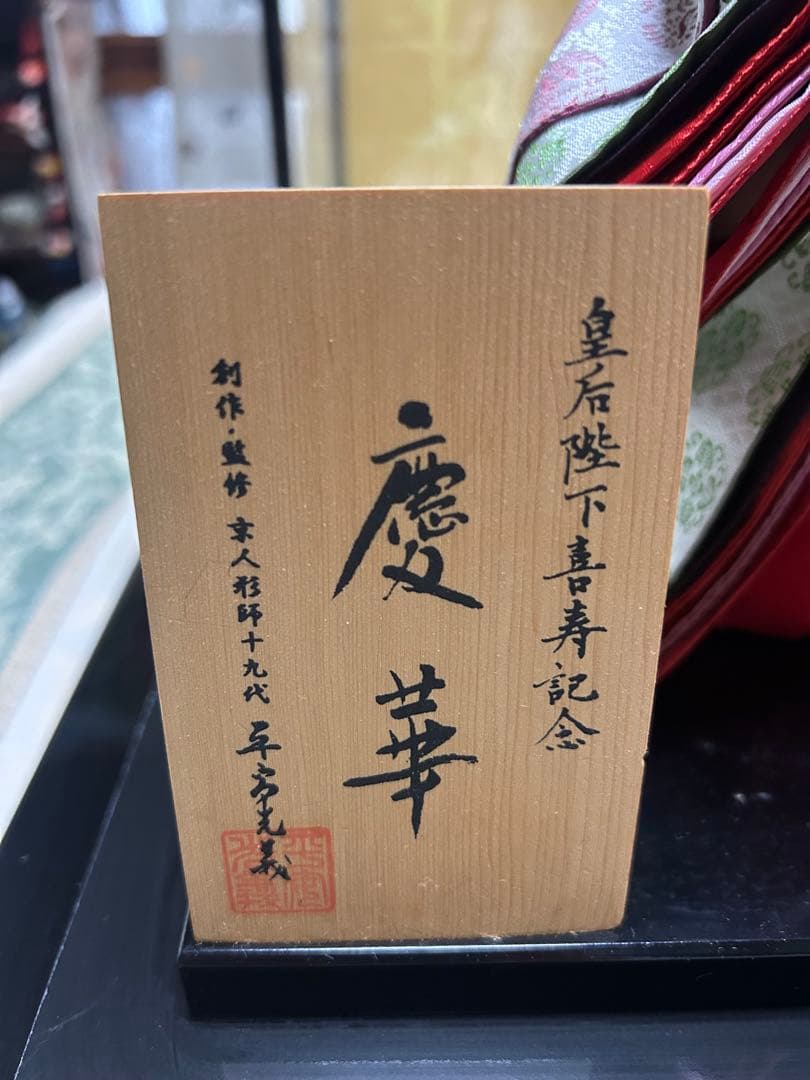 皇后陛下喜寿記念
慶華
創作・監修 京人形師十九代 平安光義